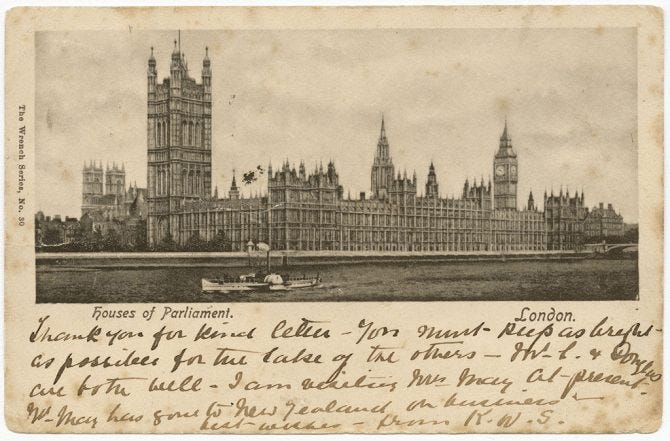 The Wrench Series, No. 30
Houses of Parliament. London.
Thank you for kind letter - You must keep as bright
as possible for the sake of the others - Mr C. & Douglas
are both well - I am visiting Mrs May at present -
Mr May has gone to New Zealand on business -
best wishes - From K.W.S.